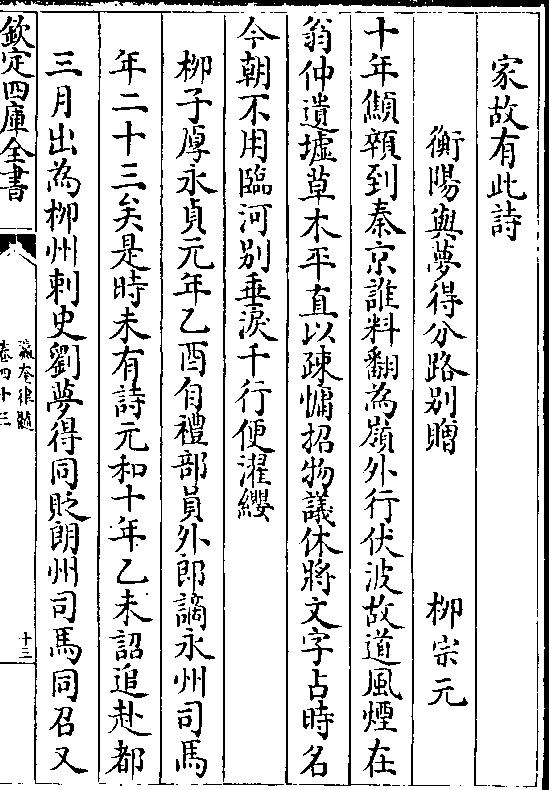 家故有此詩
衡陽與夢得分路別贈　柳宗元
十年顦顇到秦京誰料翻為嶺外行伏波故道風煙在
翁仲遺墟草木平直以疎慵招物議休將文字占時名
今朝不用臨河別垂淚千行便濯纓
柳子厚永貞元年乙酉自禮部員外郎謫永州司馬
年二十三矣是時未有詩元和十年乙未詔追赴都
三月出為柳州刺史劉夢得同貶朗州司馬同召又
欽定四庫全書
瀛奎律髓
卷四十三
十三